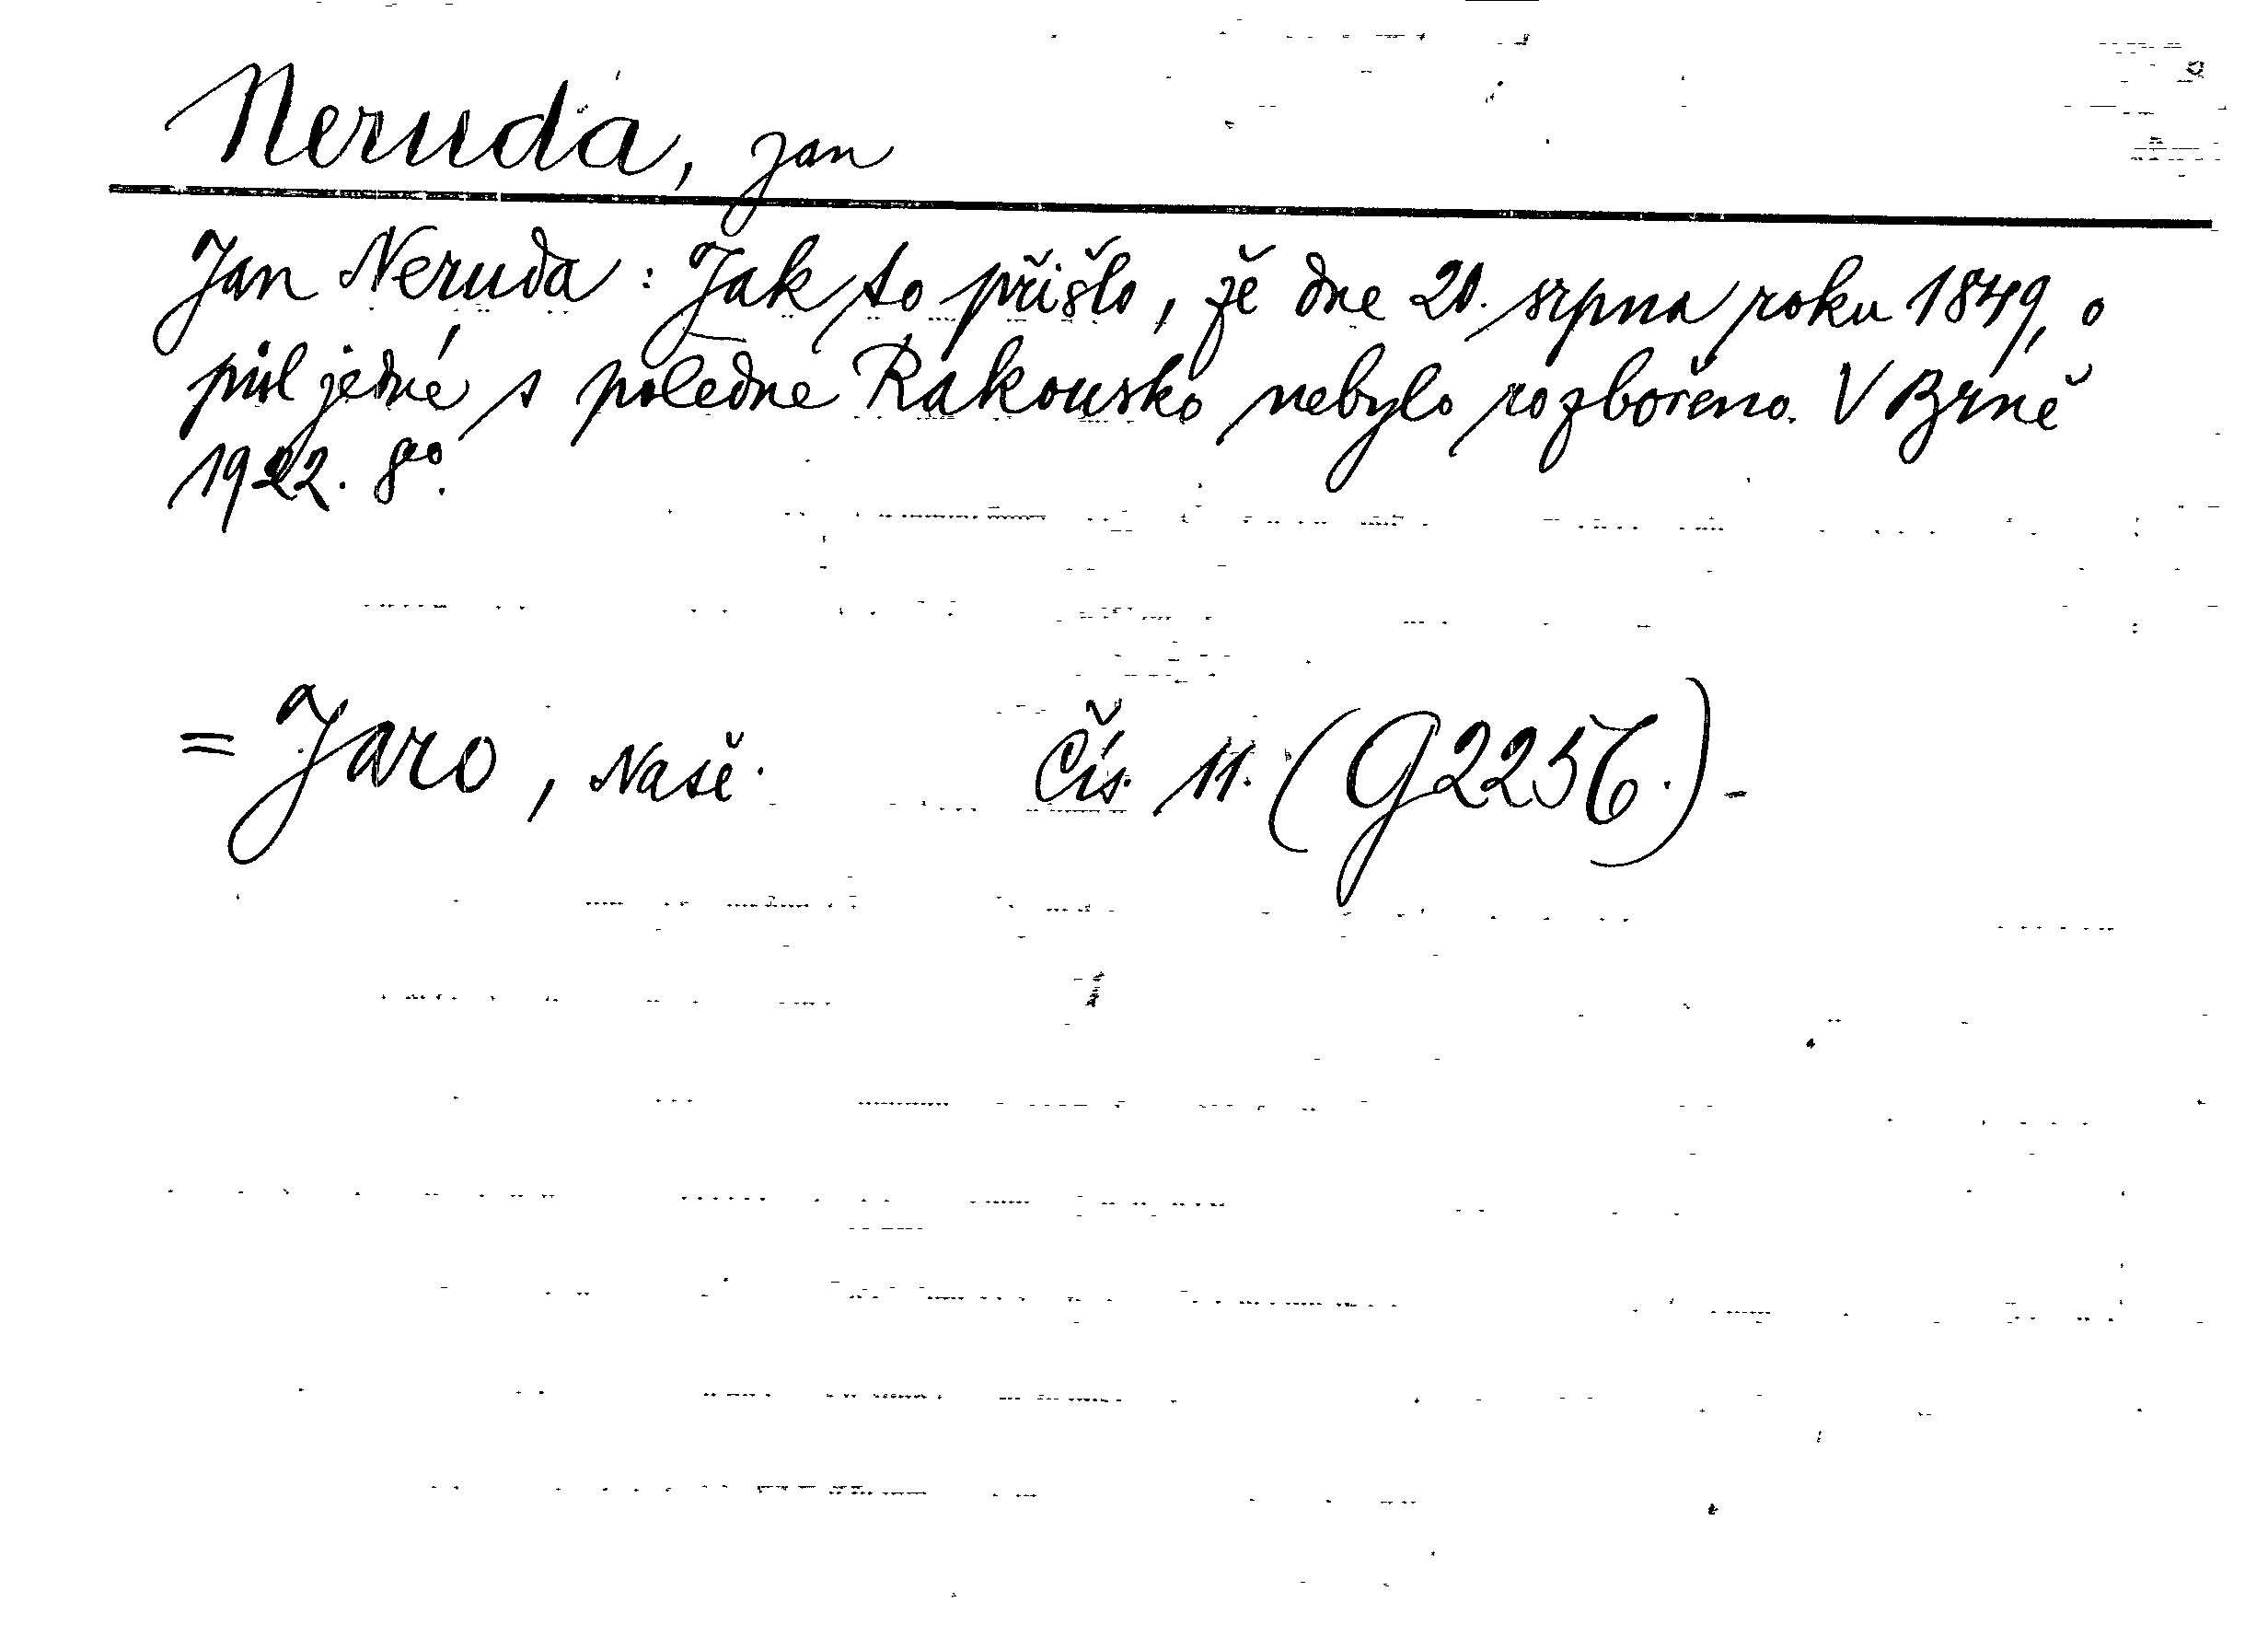 Neruda, Jan
Jan Neruda : Jak to přišlo, že dne 20. srpna roku 1849, o
půl jedné s poledne Rakousko nebylo rozbořeno. V Brně
1922. 8°.
= Jaro, Naše. Čís. 11. (G2256.) -